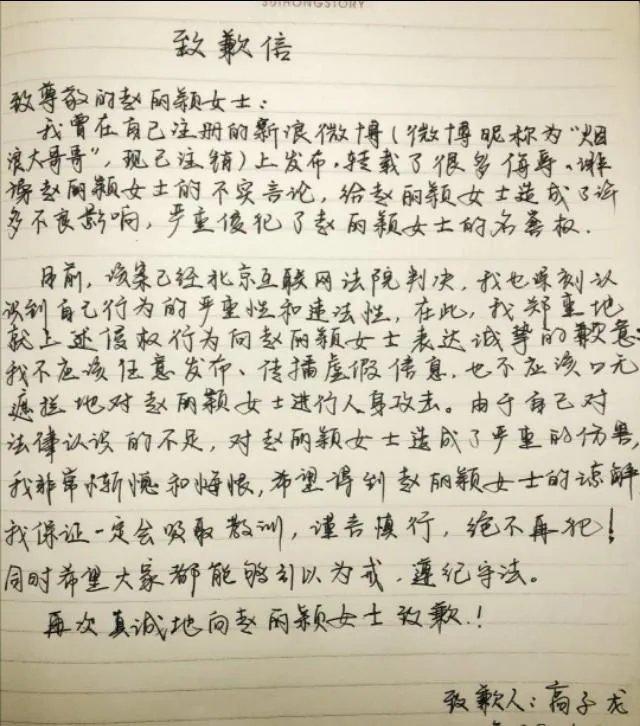 SUIHONGSTORY
致歉信
致尊敬的赵丽颖女士：
我曾在自己注册的新浪微博（微博昵称为“烟
浪大哥哥”，现已注销）上发布、转载了很多侮辱、诽
谤赵丽颖女士的不实言论，给赵丽颖女士造成了许
多不良影响，严重侵犯了赵丽颖女士的名誉权．
目前，该案已经北京互联网法院判决，我也深刻认
识到自己行为的严重性和违法性，在此，我郑重地
就上述侵权行为向赵丽颖女士表达诚挚的歉意：
我不应该任意发布、传播虚假信息，也不应该口无
遮拦地对赵丽颖女士进行人身攻击。由于自己对
法律认识的不足，对赵丽颖女士造成了严重的伤害，
我非常惭愧和悔恨，希望得到赵丽颖女士的谅解
我保证一定会吸取教训，谨言慎行，绝不再犯！
同时希望大家都能够引以为戒，遵纪守法。
再次真诚地向赵丽颖女士致歉．！
致歉人：高子龙